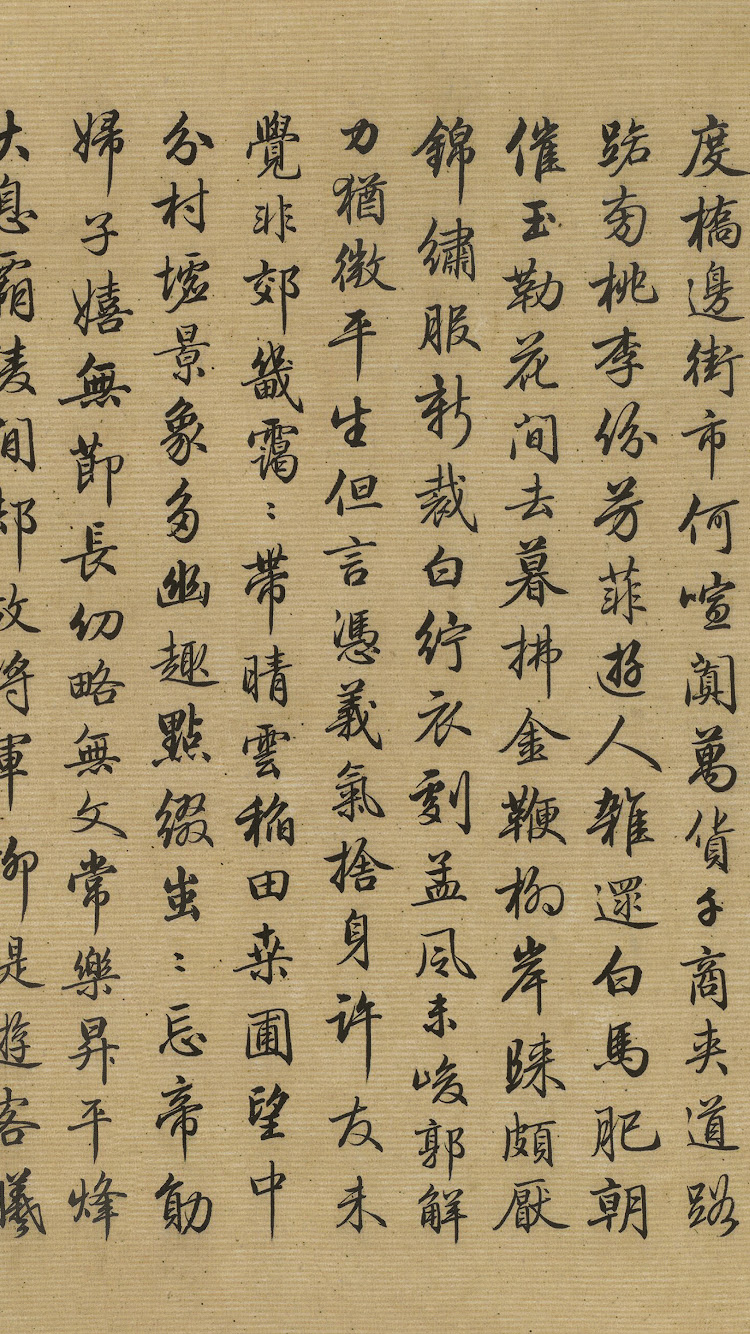 度橋邊街市何喧闐萬貨千商夾道路
路旁桃李份芳菲遊人雜還白馬肥朝
催玉勒花間去暮拂金鞭柳岸歸頗厭
錦繡服新裁白紵衣劇孟風未峻郭解
力猶微平生但言憑義氣捨身許友未
覺非郊畿靄〻帶晴雲稻田桑圃望中
分村墟景象多幽趣點綴蚩〻忘帝勛
婦子嬉無節長幼略無文常樂昇平烽
大息霸陵間却故將軍卻是遊客曦